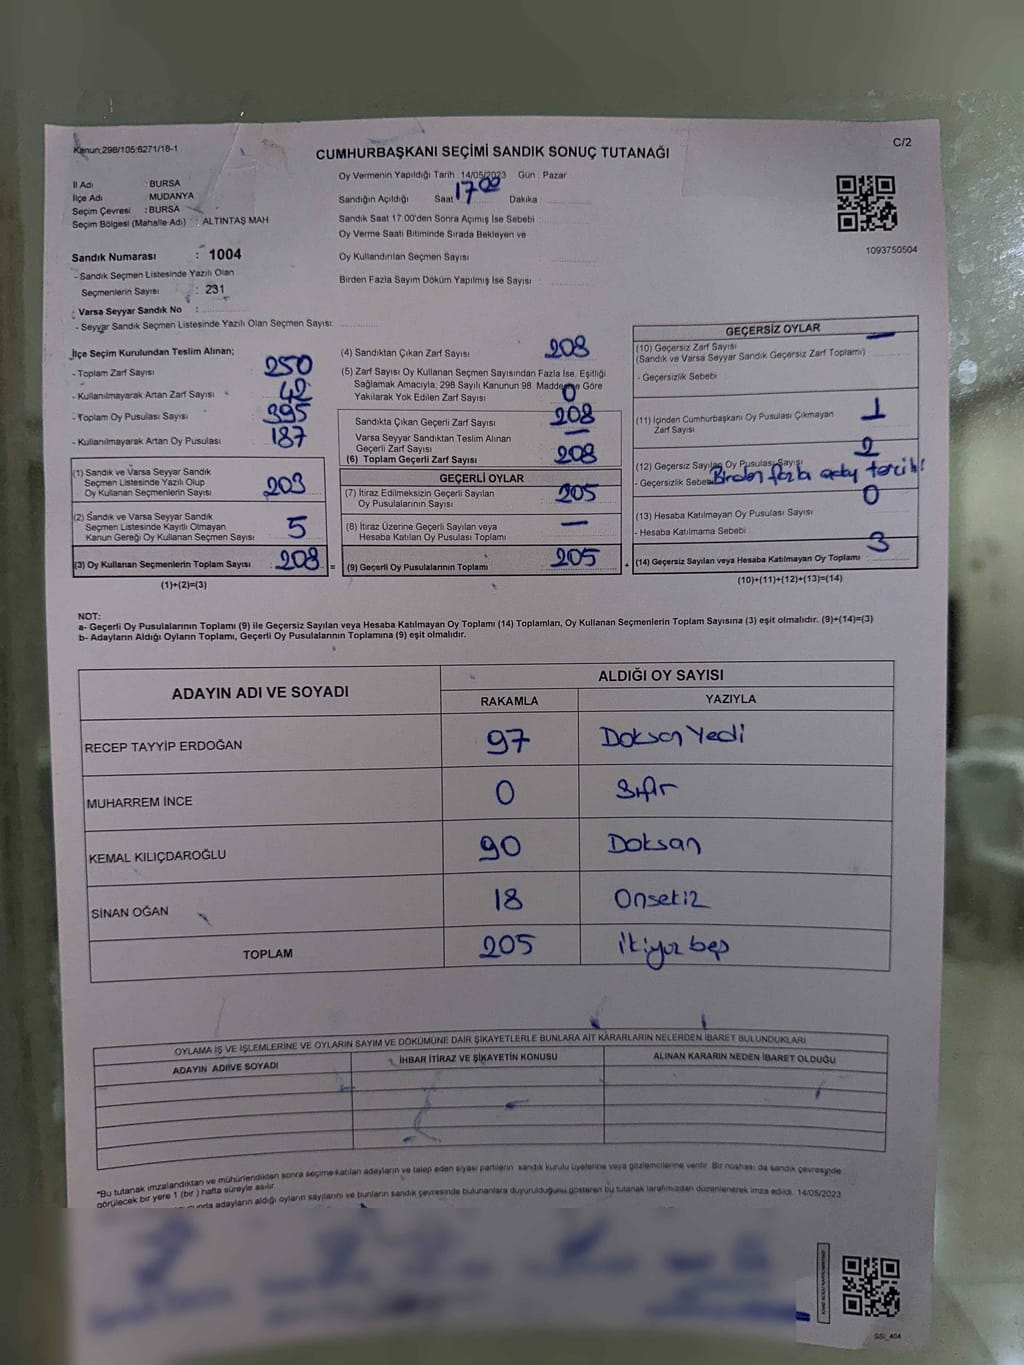 Kanun;298/105;6271/18-1
C/2
CUMHURBAŞKANI SEÇİMİ SANDIK SONUÇ TUTANAĞI
İl Adı : BURSA
İlçe Adı : MUDANYA
Seçim Çevresi : BURSA
Seçim Bölgesi (Mahalle Adı) : ALTINTAŞ MAH
Sandık Numarası : 1004
- Sandık Seçmen Listesinde Yazılı Olan
Seçmenlerin Sayısı : 231
- Varsa Seyyar Sandık No :
- Seyyar Sandık Seçmen Listesinde Yazılı Olan Seçmen Sayısı:
Oy Vermenin Yapıldığı Tarih :14/05/2023 Gün : Pazar
Sandığın Açıldığı Saat 17 00 Dakika
Sandık Saat 17:00'den Sonra Açımış İse Sebebi :
Oy Verme Saati Bitiminde Sırada Bekleyen ve
Oy Kullandırılan Seçmen Sayısı
Birden Fazla Sayım Döküm Yapılmış İse Sayısı :
1093750504
İlçe Seçim Kurulundan Teslim Alınan;
- Toplam Zarf Sayısı : 250
- Kullanılmayarak Artan Zarf Sayısı 42
- Toplam Oy Pusulası Sayısı 395
- Kullanılmayarak Artan Oy Pusulası : 187
(1) Sandık ve Varsa Seyyar Sandık
Seçmen Listesinde Yazılı Olup
Oy Kullanan Seçmenlerin Sayısı : 203
(2) Sandık ve Varsa Seyyar Sandık
Seçmen Listesinde Kayıtlı Olmayan
Kanun Gereği Oy Kullanan Seçmen Sayısı : 5
(3) Oy Kullanan Seçmenlerin Toplam Sayısı : 208 =
(1)+(2)=(3)
(4) Sandıktan Çıkan Zarf Sayısı : 208
(5) Zarf Sayısı Oy Kullanan Seçmen Sayısından Fazla İse, Eşitliği
Sağlamak Amacıyla, 298 Sayılı Kanunun 98. Maddesine Göre
Yakılarak Yok Edilen Zarf Sayısı : 0
Sandıkta Çıkan Geçerli Zarf Sayısı : 208
Varsa Seyyar Sandıktan Teslim Alınan
Geçerli Zarf Sayısı : —
(6) Toplam Geçerli Zarf Sayısı : 208
GEÇERLİ OYLAR
(7) İtiraz Edilmeksizin Geçerli Sayılan
Oy Pusulalarının Sayısı : 205
(8) İtiraz Üzerine Geçerli Sayılan veya
Hesaba Katılan Oy Pusulası Toplamı : —
(9) Geçerli Oy Pusulalarının Toplamı : 205 +
GEÇERSİZ OYLAR
(10) Geçersiz Zarf Sayısı —
(Sandık ve Varsa Seyyar Sandık Geçersiz Zarf Toplamı)
- Geçersizlik Sebebi
(11) İçinden Cumhurbaşkanı Oy Pusulası Çıkmayan
Zarf Sayısı 1
(12) Geçersiz Sayılan Oy Pusulası Sayısı 2
- Geçersizlik Sebebi Birden fazla aday tercihi
(13) Hesaba Katılmayan Oy Pusulası Sayısı 0
- Hesaba Katılmama Sebebi
(14) Geçersiz Sayılan veya Hesaba Katılmayan Oy Toplamı : 3
(10)+(11)+(12)+(13)=(14)
NOT:
a- Geçerli Oy Pusulalarının Toplamı (9) ile Geçersiz Sayılan veya Hesaba Katılmayan Oy Toplamı (14) Toplamları, Oy Kullanan Seçmenlerin Toplam Sayısına (3) eşit olmalıdır. (9)+(14)=(3)
b- Adayların Aldığı Oyların Toplamı, Geçerli Oy Pusulalarının Toplamına (9) eşit olmalıdır.
ADAYIN ADI VE SOYADI
ALDIĞI OY SAYISI
RAKAMLA YAZIYLA
RECEP TAYYİP ERDOĞAN 97 Doksan Yedi
MUHARREM İNCE 0 Sıfır
KEMAL KILIÇDAROĞLU 90 Doksan
SİNAN OĞAN 18 Onsekiz
TOPLAM 205 İkiyüz beş
OYLAMA İŞ VE İŞLEMLERİNE VE OYLARIN SAYIM VE DÖKÜMÜNE DAİR ŞİKAYETLERLE BUNLARA AİT KARARLARIN NELERDEN İBARET BULUNDUKLARI
ADAYIN ADI VE SOYADI İHBAR İTİRAZ VE ŞİKAYETİN KONUSU ALINAN KARARIN NEDEN İBARET OLDUĞU
*Bu tutanak imzalandıktan ve mühürlendikten sonra seçime katılan adayların ve talep eden siyasi partilerin sandık kurulu üyelerine veya gözlemcilerine verilir. Bir nüshası da sandık çevresinde
görülecek bir yere 1 (bir) hafta süreyle asılır.
adayların aldığı oyların sayılarını ve bunların sandık çevresinde bulunanlara duyurulduğunu gösteren bu tutanak tarafımızdan düzenlenerek imza edildi. 14/05/2023
GSİ_404